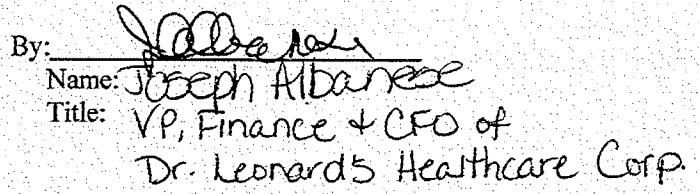 By:
Name: Joseph Albanese
Title: VP, Finance + CFO of
Dr. Leonard's Healthcare Corp.